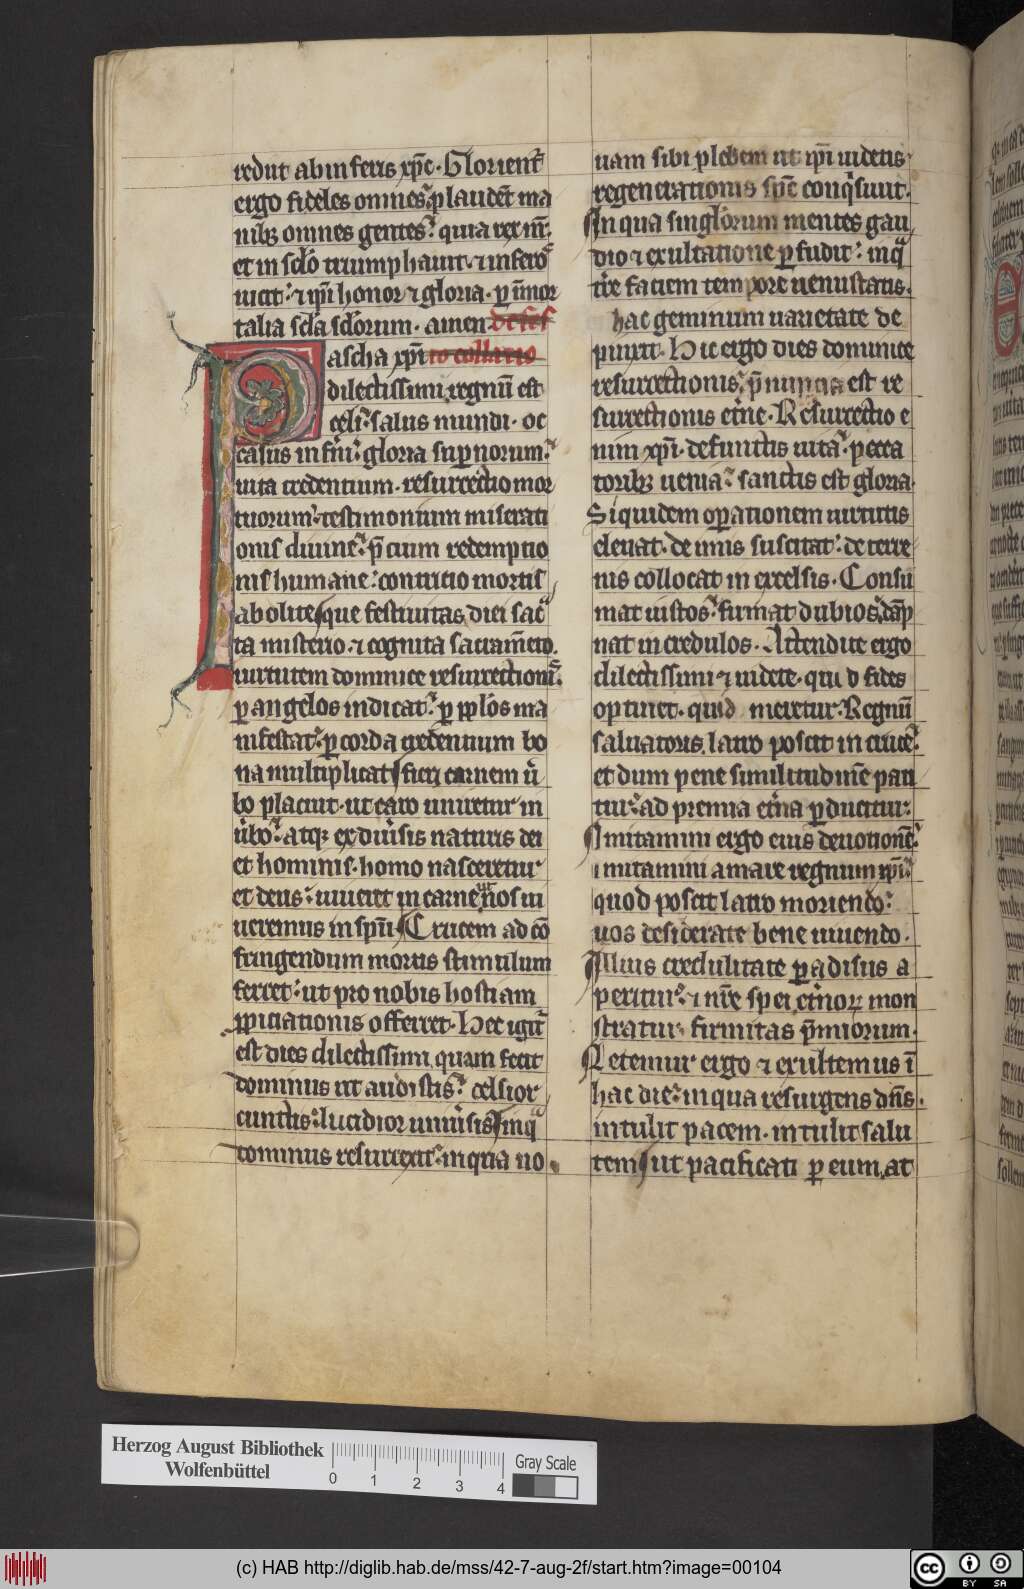 redut ab inferis xp̄c. Glorient̄
ergo fideles omnes. plaudēt ma
nib; omnes gentes. quia rex nr̄.
et in sc̄lo triumphauit. ⁊ infero
uicit. ⁊ ip̄i honor ⁊ gloria. ꝑ īmor
talia sc̄la sc̄lorum. amen. de fes
ascha xp̄i to collatio
dilectissimi. regnū est
celi. salus mundi. oc
casus inferni. gloria suꝑnorum.
uita credentium. resurrectio mor
tuorum. testimonium miserati
onis diuine. p̄cium redemptio
nis humane. contritio mortis
abolite que festiuitas diei sac
ta misterio. ⁊ cognita sacram̄eto.
uirtutem dominice resurrectionis.
ꝑ angelos indicat. ꝑ pplōs ma
nifestat. ꝑ corda credentium bo
na multiplicat sicut carnem u̇
bo placuit. ut caro uniretur in
u̇bo. atq; ex diu̇sis naturis dei
et hominis. homo nasceretur
et deus. uiueret in carne ut nos ui
ueremus in spū. Crucem ad cō
fringendum mortis stimulum
ferret. ut pro nobis hostiam
ꝓpiciationis offerret. Hec igit̄
est dies dilectissimi quam fecit
dominus ut audistis. celsior
cunctis. lucidior uniu̇sis in q̄
dominus resurrexit. in qua no
uam sibi plebem ut ip̄i uidetis
regenerationis sp̄c conq̇siuit.
In qua singlorum mentes gau
dio ⁊ exultatione ꝑfudit. in q̄
tr̄e faciem tempore uenustatis.
hac geminum uarietate de
pinxit. Hic ergo dies dominice
resurrectionis. p̄nuncia est re
surrectionis et̄ne. Resurrectio e
nim xp̄i. defunctis uita. pecca
torib; uenia. sanctis est gloria.
Siquidem oꝑationem uirtutis
eleuat. de imis suscitat. de terre
nis collocat in excelsis. Consū
mat iustos. firmat dubios. dāp
nat incredulos. Attendite ergo
dilectissimi ⁊ uidete. qui v fides
optinet. quid meretur. Regnū
saluatoris. latro poscit in cruce.
et dum pene similitudinē pati
tur. ad premia et̄na ꝑducitur.
Imitamini ergo eius deuotionē.
imitamini amare regnum xp̄i.
quod poscit latro moriendo.
uos desiderate bene uiuendo.
Illius credulitate ꝑadisus a
peritur. ⁊ nr̄e spei et̄norꝝ mon
stratur firmitas p̄miorum.
Letemur ergo ⁊ exultemus ī
hac die. in qua resurgens dn̄s.
intulit pacem. intulit salu
tem ut pacificati ꝑ eum at
Herzog August Bibliothek
Wolfenbüttel
0 1 2 3 4
Gray Scale
(c) HAB http://diglib.hab.de/mss/42-7-aug-2f/start.htm?image=00104
cc BY SA